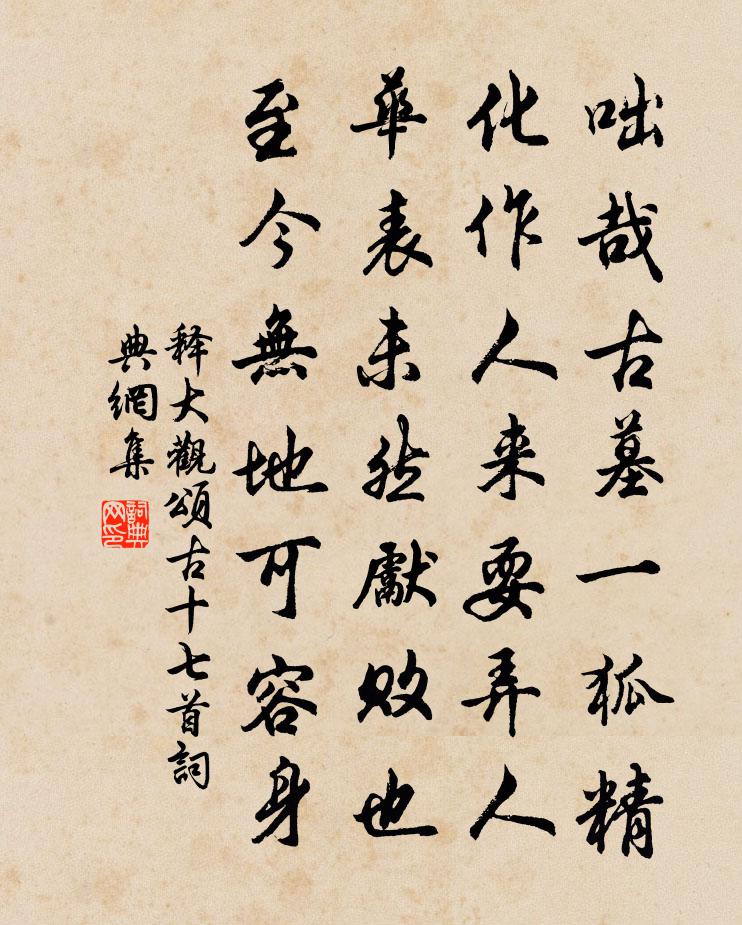 咄哉古墓一狐精
化作人来耍弄人
華表未然獻敗也
至今無地可容身
释大觀頌古十七首詞
典網集
詞典
网印